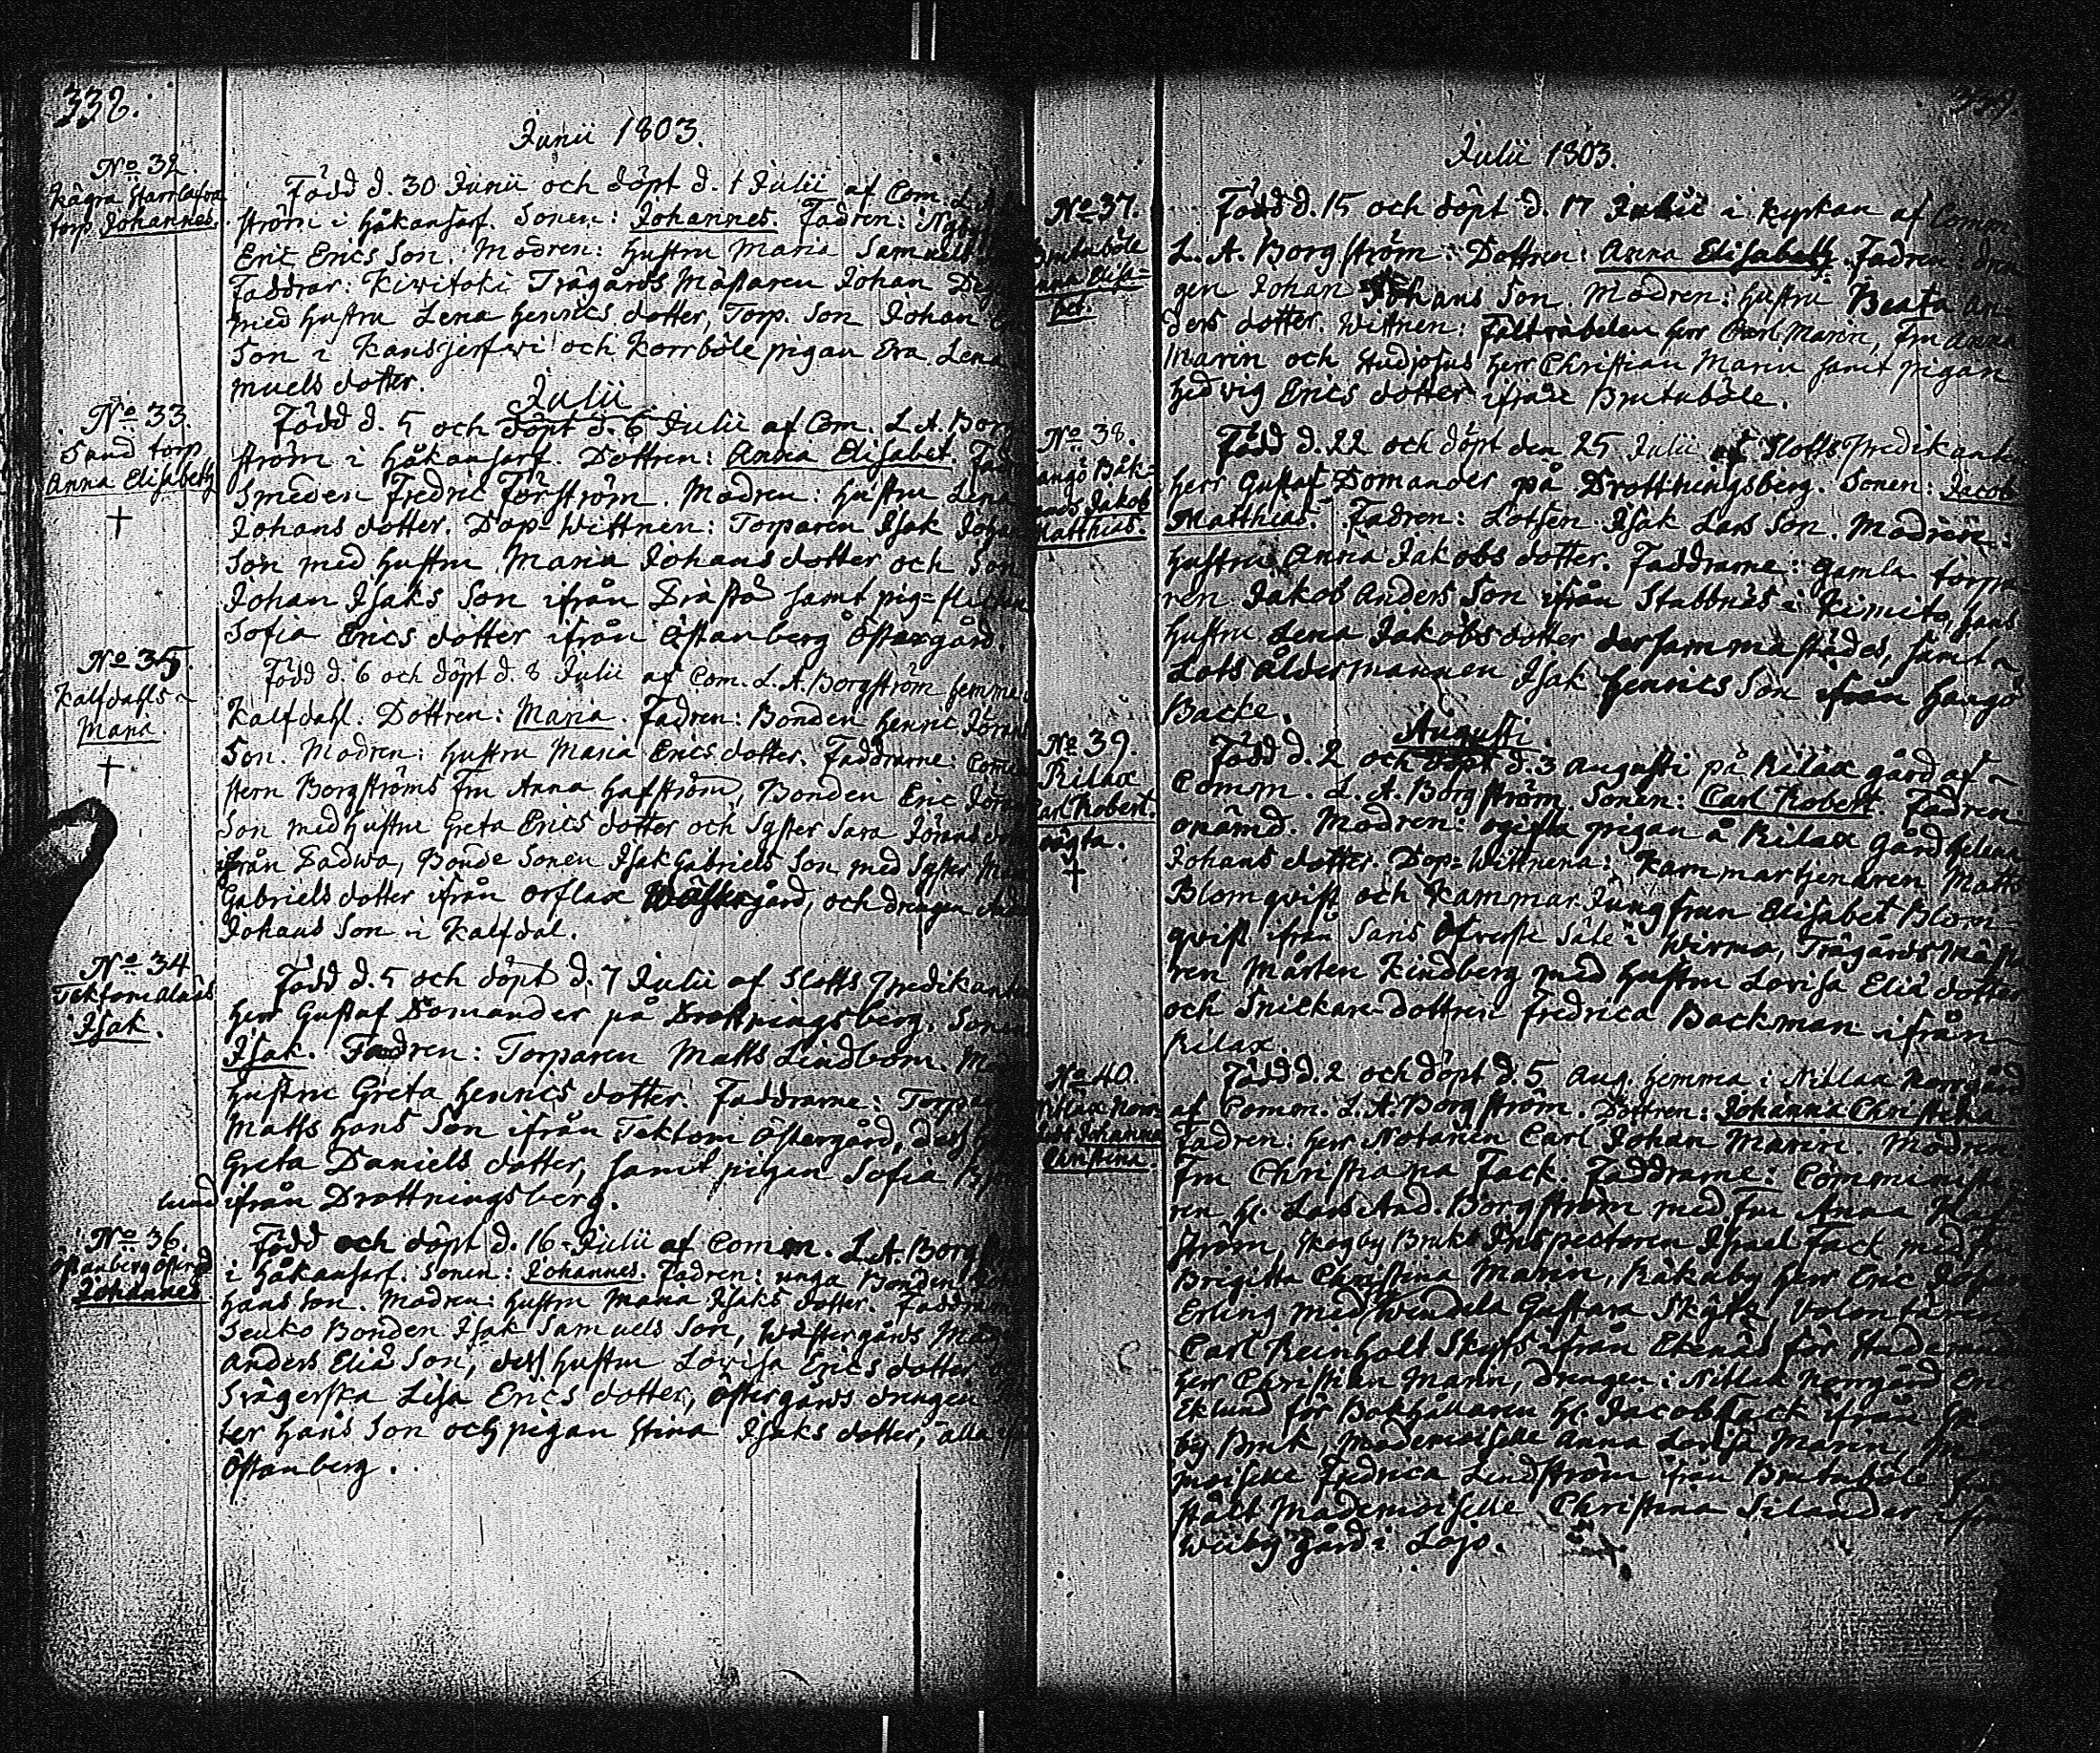 338.
Junii 1803.
No 32.
Kägra
torp. Johannes.
Född d. 30 Junii och döpt d. 1 Julii af Com. L.
ström i Håkansarf. Sonen: Johannes. Fadren:
Eric Erics Son. Modren: Hustru Maria Samuels
Faddrar: Kiwitoki Trägårds Mästaren Johan
med hustru Lena Henrics dotter, Torp. Son Johan
Son i Kansjerfwi och Korrböle pigan Eva Lena
muels dotter.
Julii
No 33.
Sand torp
Anna Elisabeth
Född d. 5 och döpt d. 6 Julii af Com. L. A. Borg
ström i Håkansarf. Dottren: Anna Elisabet. Fad
Smeden Fredric Forsström. Modren: Hustru Lena
Johans dotter. Dop-Wittnen: Torparen Isak Joha
Son med Hustru Maria Johans dotter och Son
Johan Isaks Son ifrån samt pig-
Sofia Erics dotter ifrån Östanberg Östergård.
No 35.
Kalfdahls
Maria.
Född d. 6 och döpt d. 8 Julii af Com. L. A. Borgström hemma i
Kalfdahl. Dottren: Maria. Fadren: Bonden Henric Jörans
Son. Modren: Hustru Maria Erics dotter. Faddrarne: Commi
stern Borgströms Fru Anna Hafström, Bonden Eric Jöra
Son med Hustru Greta Erics dotter och Syster Sara Jörans
ifrån Dadwa, Bonde Sonen Isak Gabriels Son med Syster
Gabriels dotter ifrån Orslax Wästergård, och drengen
Johans Son i Kalfdal.
No 34
Tektom
Isak.
Född d. 5 och döpt d. 7 Julii af Slotts Predikanten
Herr Gustaf Domander på Drottningsberg. Sonen
Isak. Fadren: Torparen Matts Lindbom. Mo
Hustru Greta Henrics dotter. Faddrarne: Torpar
Matts Hans Son ifrån Tektom Östergård, dess
Greta Daniels dotter, samt pigan Sofia
lund ifrån Drottningsberg.
No 36.
Östanberg Österg.
Johannes
Född och döpt d. 16 Julii af Comm. L. A. Borgst
i Håkansarf. Sonen: Johannes. Fadren: unga Bonden
Hans Son. Modren: Hustru Maria Isaks dotter. Faddra
Seuko Bonden Isak Samuels Son, Wästergårds Måg
Anders Eliæ Son, dess Hustru Lovisa Erics dotter
Svägerska Lisa Erics dotter, Östergårds drengen
ter Hans Son och pigan Stina Isaks dotter, alla
Östanberg.
339.
Julii 1803.
No 37.
Brutuböle
Anna Elisa-
bet.
Född d. 15 och döpt d. 17 Julii i Kyrkan af Comm
L. A. Borgström. Dottren: Anna Elisabeth. Fadren: dren
gen Johan Johans Son. Modren: Hustru Beata An
ders dotter. Wittnen: Herr Carl Marin, Fru Anna
Marin och Studiosus Herr Christian Marin samt pigan
Hedvig Erics dotter ifrån Brutuböle.
No 38.
Hangö Bak-
Jakob
Matthias.
Född d. 22 och döpt den 25 Julii af Slotts Predikanten
Herr Gustaf Domander på Drottningsberg. Sonen: Jacob
Matthias. Fadren: Lotsen Isak Lars Son. Modren:
Hustru Anna Jakobs dotter. Faddrarne: gamla torpa
ren Jakob Anders Son ifrån Stabbnäs i Kimito, hans
Hustru Lena Jakobs dotter dersammastädes, samt
Lots åldermannen Isak Henrics Son ifrån Hangö
Backe.
Augusti.
No 39.
Rilax
Carl Robert.
oägta.
Född d. 2 och döpt d. 3 Augusti på Rilax gård af
Comm. L. A. Borgström. Sonen: Carl Robert. Fadren
onämd. Modren: ogifta pigan å Rilax gård Helena
Johans dotter. Dop-Wittnena: Kammartjenaren Matts
Blomqvist och Kammar Jungfrun Elisabet Blom-
qvist ifrån Saris Öfverste Säte i Wirmo, Trägårds Mästa
ren Mårten Kindberg med Hustru Lovisa Eliæ dotter
och Snickare-dottren Fredrica Backman ifrån
Rilax.
No 40.
Nitlax Norr-
Johanna
Christina.
Född d. 2 och döpt d. 5 Aug. hemma i Nitlax Norrgård
af Comm. L. A. Borgström. Dottren: Johanna Christina
Fadren: Herr Notarien Carl Johan Marin. Modren
Fru Christiana Fack. Faddrarne: Comministe
ren H. Lars And. Borgström med Fru Anna Haf
ström, Skogby Bruks Inspectoren Israel Fack med Fru
Brigitta Christina Marin, Råkaby Herr Eric Johan
Erling med Wendela Gustava Skytz, Volontären
Carl Reinholt Skytz ifrån Ekenäs för Studeranden
Herr Christian Marin, drengen i Nitlax Norrgård Eric
Eklund för Bokhållaren H. Jacob Fack ifrån Skog
by Bruk, Mademoiselle Anna Lovisa Marin, Made
moiselle Fredrica Lindström ifrån Brutuböle
stält Mademoiselle Christina Silander ifrån
gård i Lojo.